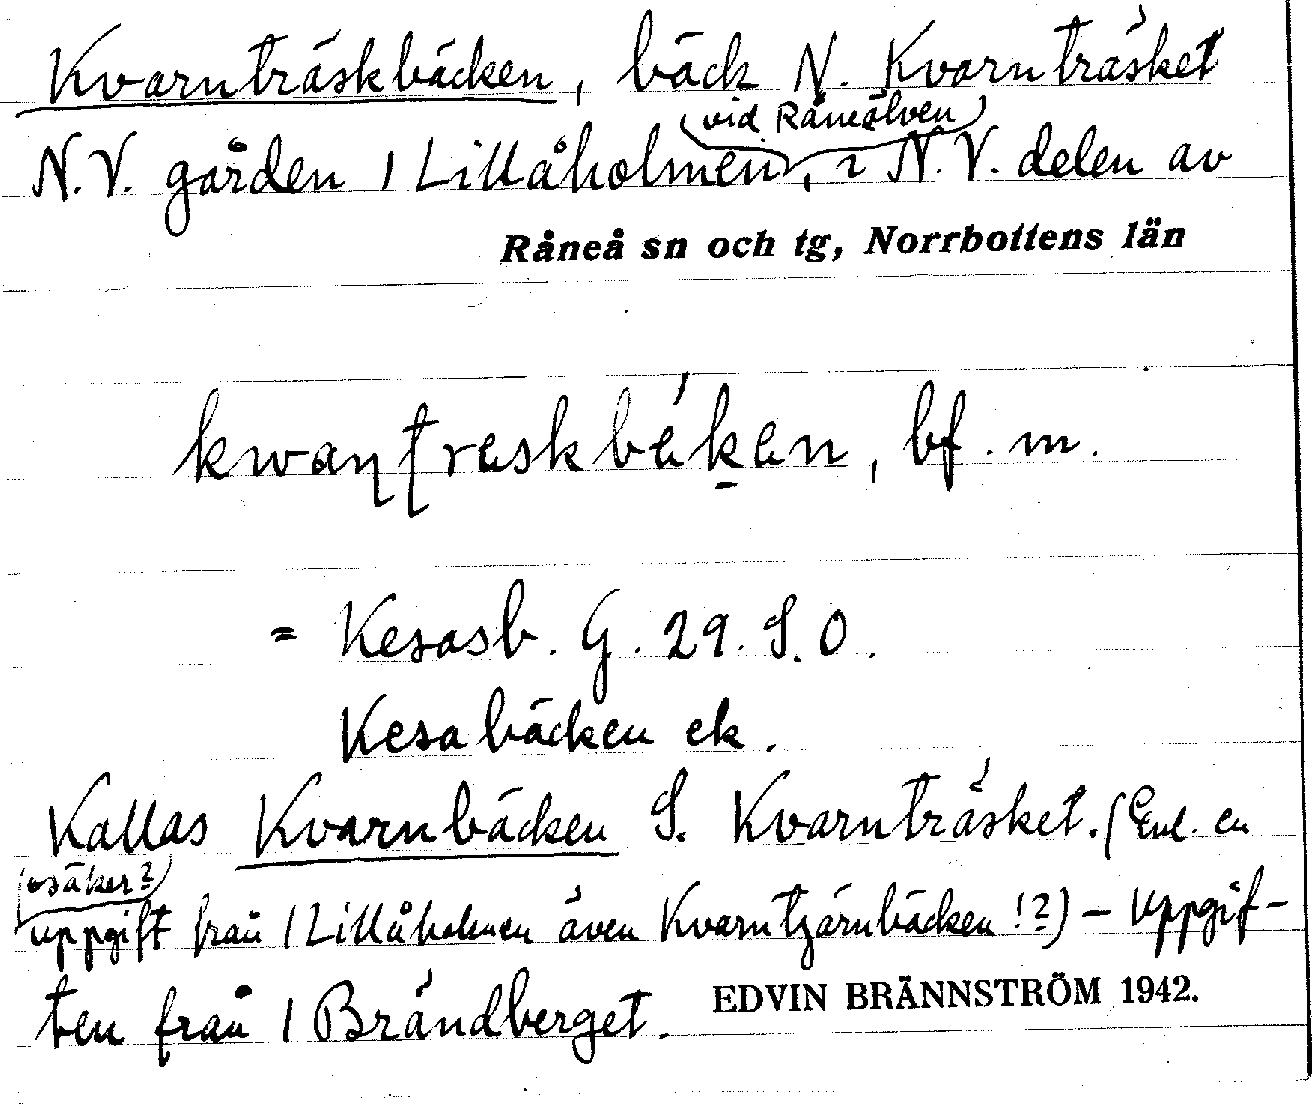 Kvarnträskbäcken, bäck N. Kvarnträsket
(vid Råneälven)
N.V. gården / Lillåholmen, i N.V. delen av
Råneå sn och tg, Norrbottens län
kwaṇʈreskbéken, bf. m.
= Kesasb. G. 29. S.O.
Kesabäcken ek.
Kallas Kvarnbäcken S. Kvarnträsket. (Enl. en
(osäker?)
uppgift från / Lillåholmen även Kvarntjärnbäcken!?) – Uppgif-
ten från / Brändberget.
EDVIN BRÄNNSTRÖM 1942.